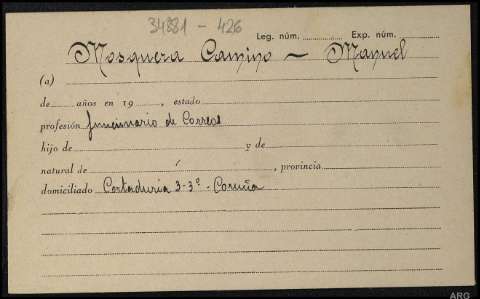 34881 - 426
Leg. núm. Exp. núm.
Mosquera Camino - Manuel
(a)
de años en 19 , estado
profesión funcionario de Correos
hijo de y de
natural de , provincia
domiciliado Cortaduria 3-3º - Coruña
ARG